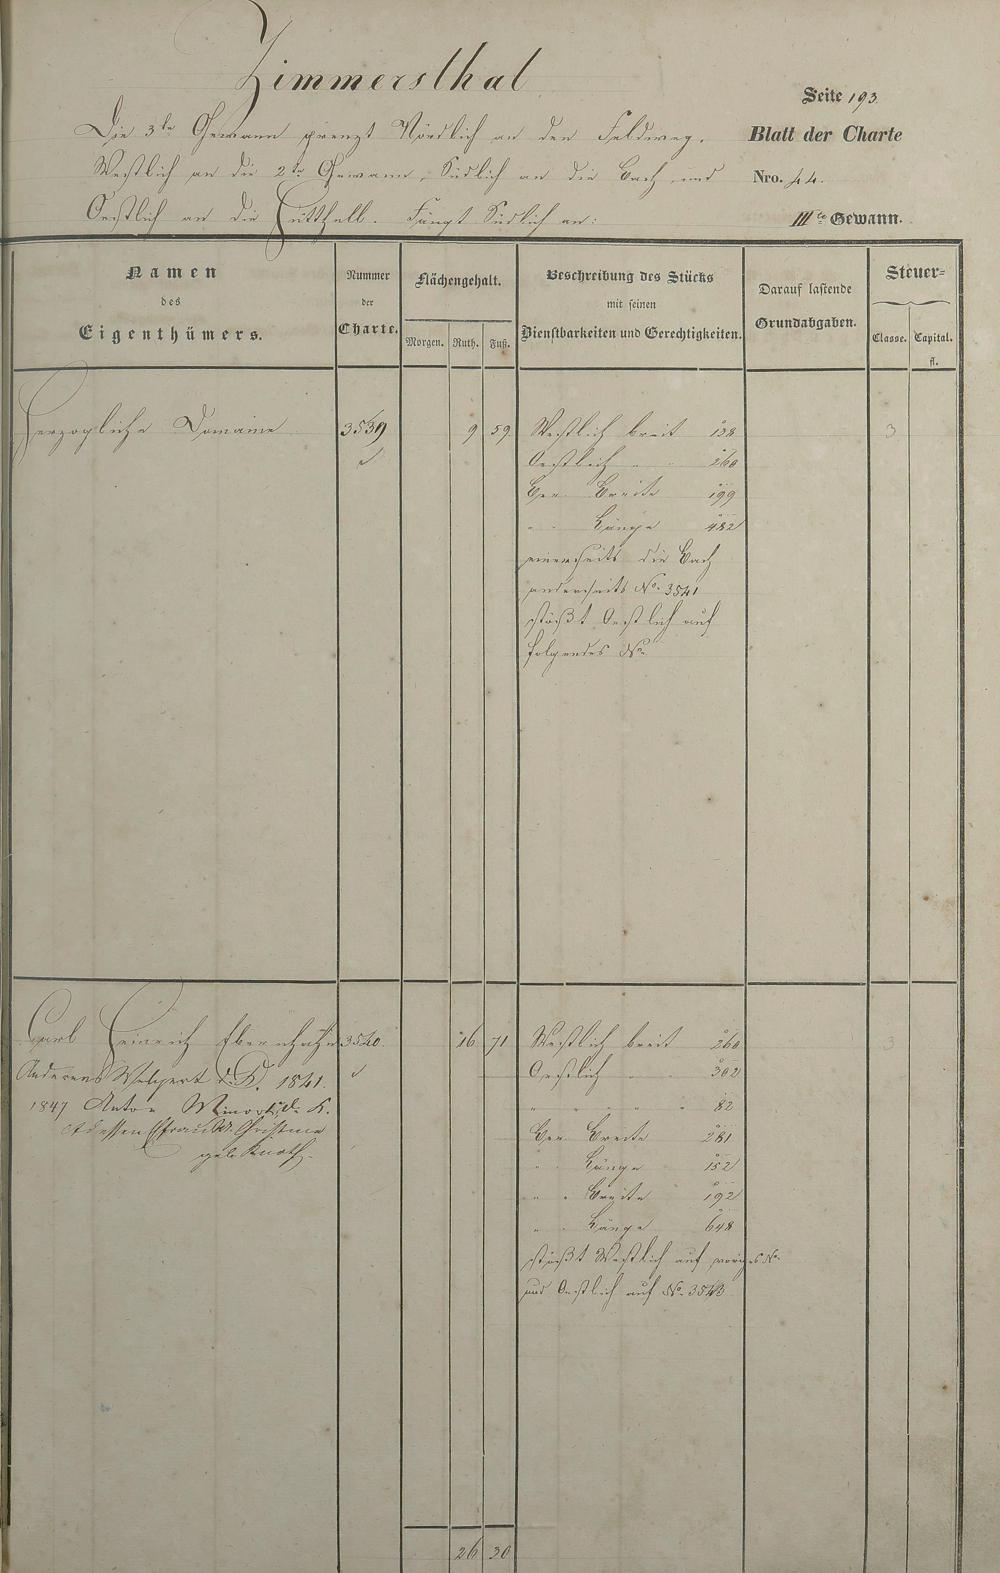 Zimmersthal
Seite 193.
Die 3te Gewann grenzt Nördlich an den Feldweg,
Blatt der Charte
Westlich an die 2te Gewann, Südlich an die Bach und
Nro. 44.
Oestlich an die Fängt Südlich an:
IIIte Gewann.
Namen
des
Eigenthümers.
Nummer
der
Charte.
Flächengehalt.
Morgen. Ruth. Fuß.
Beschreibung des Stücks
mit seinen
Dienstbarkeiten und Gerechtigkeiten.
Darauf lastende
Grundabgaben.
Steuer=
Classe. Capital.
fl.
Herzogliche Domaine 3539 9 59 Westlich breit 138 3
Oestlich " " 260
Ber. Breite 199
" " Länge 482
einerseits die Bach
anderseits No. 3541
stößt Oestlich auf
folgendes No.
Carl Heinrich 3540. 16 71 Westlich breit 260 3
1841. Oestlich " " 302
1847 Anton d. K. " " " " 82
Ber. Breite 281
geb. " " Länge 152
" " Breite 192
" " Länge 648
stößt Westlich auf voriges No.
und Oestlich auf No. 3543
26 30